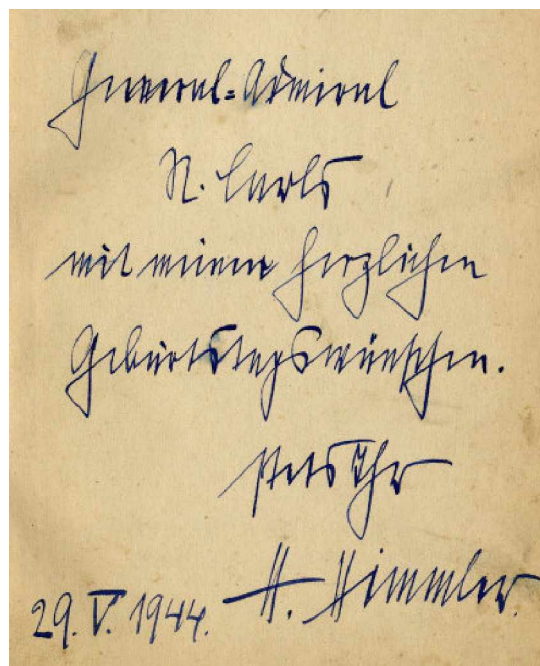 General=Admiral
R. Carls
mit meinen herzlichen
Geburtstagswünschen.
stets Ihr
H. Himmler.
29. V. 1944.